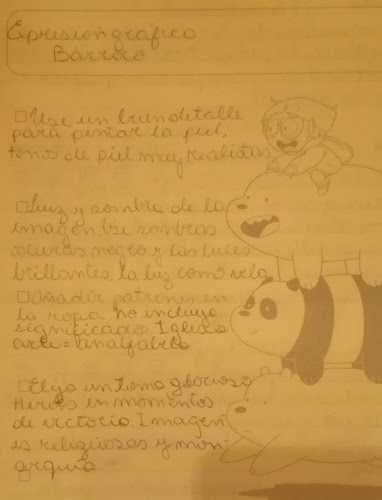 Expresión gráfica
Barroco
Use un buen detalle
para pintar la piel,
tonos de piel muy realistas
Luz y sombra de la
imagen. Use sombras
oscuras, negro y las luces
brillantes, la luz como vela
Añadir patrones en
la ropa no incluyo
significado
arte = analfabeto
Elijo un tema glorioso
Heroes en momentos
de victoria. Imagen
es religiosas y mon-
arquía